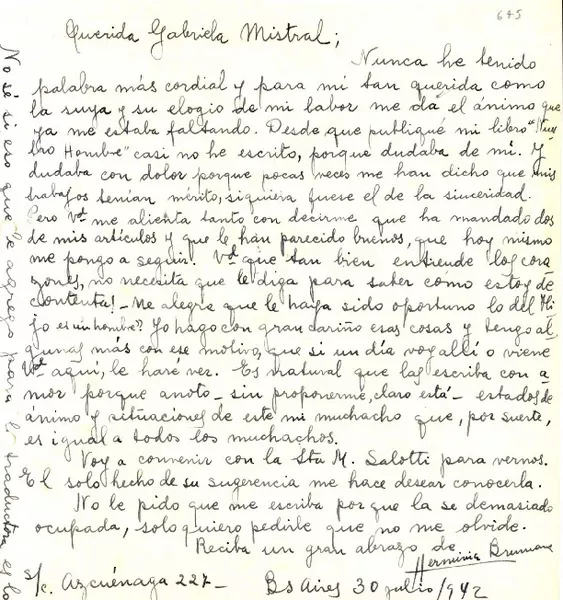 645
Querida Gabriela Mistral;
Nunca he tenido
palabra más cordial y para mí tan querida como
la suya y su elogio de mi labor me dá el ánimo que
ya me estaba faltando. Desde que publiqué mi libro "Nues
tro Hombre" casi no he escrito, porque dudaba de mí. Y
dudaba con dolor porque pocas veces me han dicho que mis
trabajos tenían mérito, siquiera fuese el de la sinceridad.
Pero Vd me alienta tanto con decirme que ha mandado dos
de mis artículos y que le han parecido buenos, que hoy mismo
me pongo a seguir. Vd que tan bien entiende los cora
zones, no necesita que le diga para saber como estoy de
contenta! - Me alegra que le haya sido oportuno lo del "Hi
jo es un hombre". Yo hago con gran cariño esas cosas y tengo al
gunas más con ese motivo, que si un día voy allí o viene
Vd aquí, le haré ver. Es natural que las escriba con a
mor porque anoto - sin proponerme, claro está - estados de
ánimo y situaciones de este mi muchacho que, por suerte,
es igual a todos los muchachos.
Voy a convenir con la Sta M. Salotti para vernos.
El solo hecho de su sugerencia me hace desear conocerla.
No le pido que me escriba porque la se demasiado
ocupada, solo quiero pedirle que no me olvide.
Reciba un gran abrazo de
Herminia Brumana
s/c. Azcuénaga 227 - Bs Aires 30 julio/942
No sé si eso que le agrego para la traductora es lo